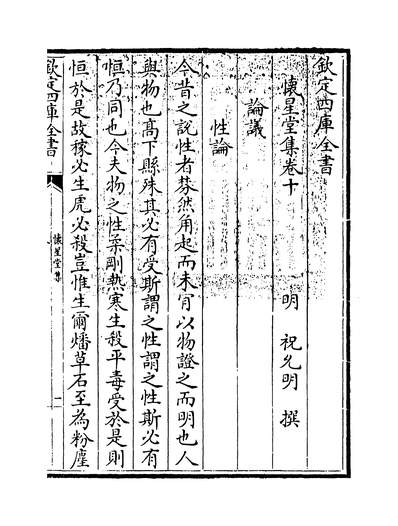 欽定四庫全書
懷星堂集卷十
明 祝允明 撰
論議
性論
今昔之説性者棼然角起而未有以物證之而明也人
與物也髙下縣殊其必有受斯謂之性謂之性斯必有
恒乃同也今夫物之性柔剛熱寒生殺平毒受於是則
恒於是故稼必生虎必殺豈惟生爾燔草石至為粉塵
欽定四庫全書
懷星堂集
一